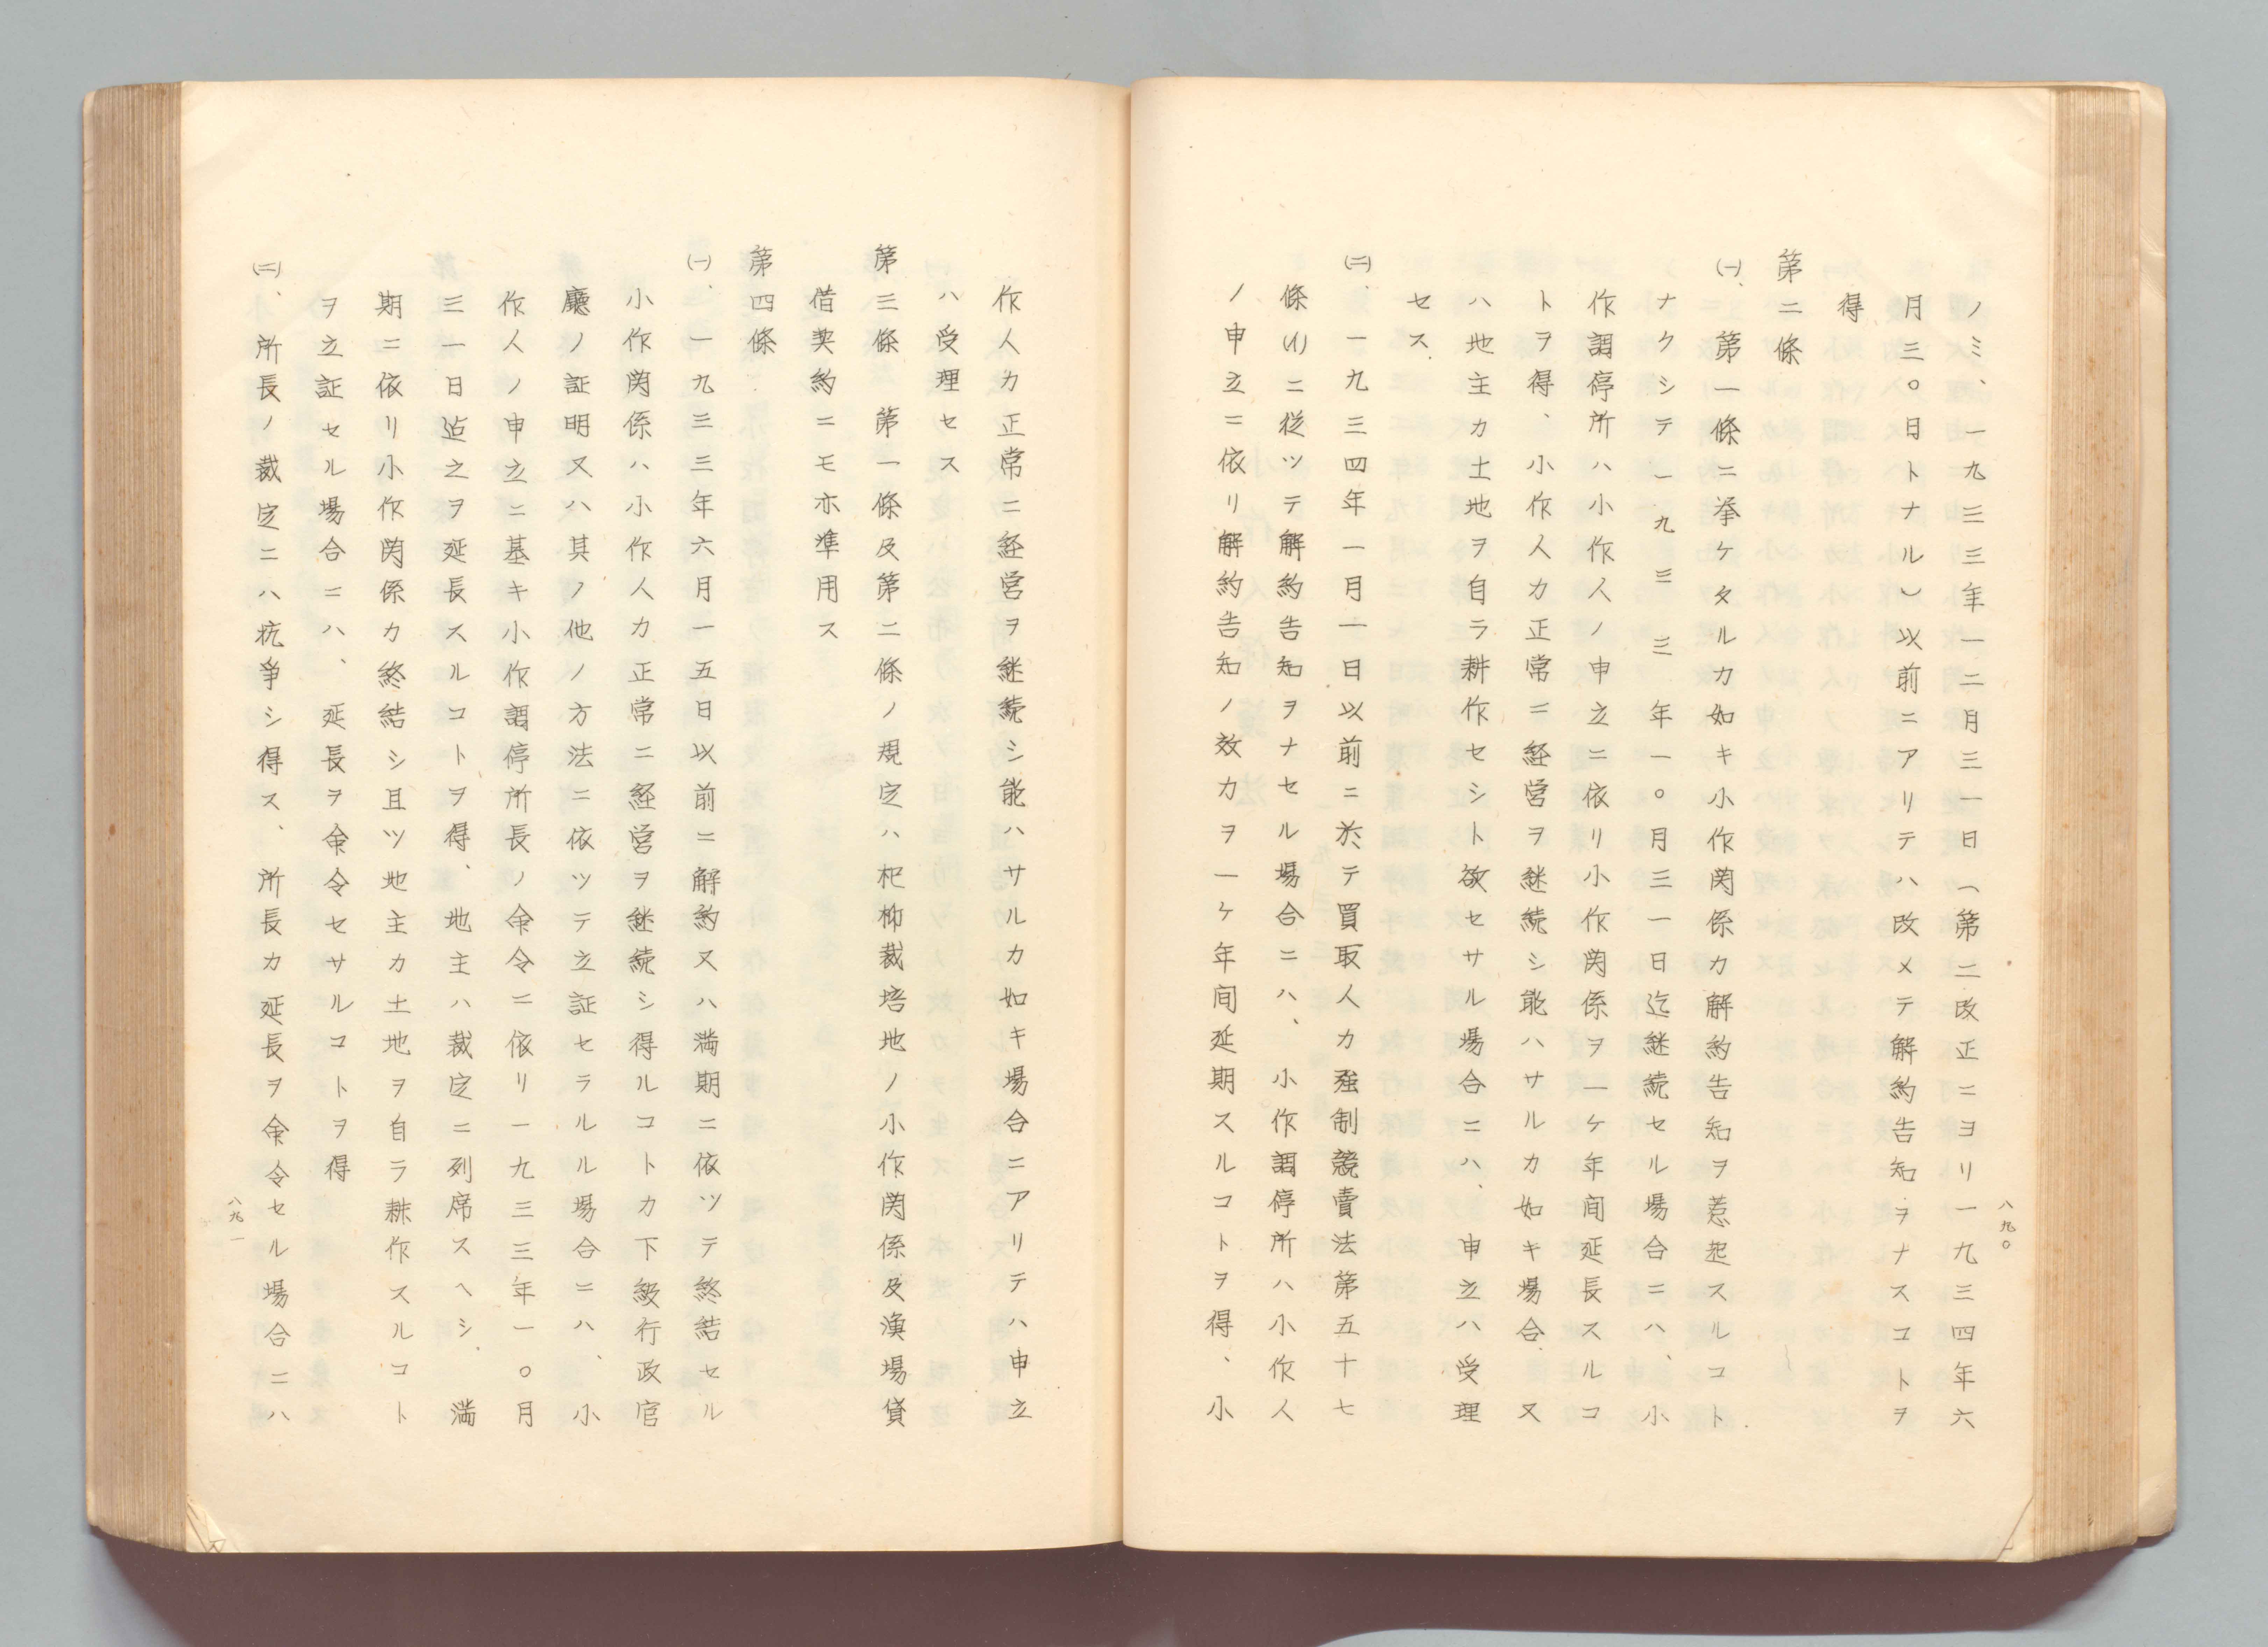 ノミ、一九三三年一二月三一日（第二改正ニヨリ一九三四年六
月三〇日トナル）以前ニアリテハ改メテ解約告知ヲナスコトヲ
得
第二條
㈠、第一條ニ挙ケタルカ如キ小作関係カ解約告知ヲ惹起スルコト
ナクシテ一九三三年一〇月三一日迄継続セル場合ニハ、小
作調停所ハ小作人ノ申立ニ依リ小作関係ヲ一ケ年间延長スルコ
トヲ得、小作人カ正常ニ経営ヲ継続シ能ハサルカ如キ場合又
ハ地主カ土地ヲ自ラ耕作セシト欲セサル場合ニハ、申立ハ受理
セス
㈡、一九三四年一月一日以前ニ於テ買取人カ强制競賣法第五十七
條(1)ニ從ツテ解約告知ヲナセル場合ニハ、小作調停所ハ小作人
ノ申立ニ依リ解約告知ノ效カヲ一ケ年间延期スルコトヲ得、小
八九〇
作人カ正常ニ経営ヲ継続シ能ハサルカ如キ場合ニアリテハ申立
ハ受理セス
第三條　第一條及第二條ノ規定ハ杞柳裁培地ノ小作関係及漁場貸
借契約ニモ亦準用ス
第四條
㈠、一九三三年六月一五日以前ニ解約又ハ満期ニ依ツテ終結セル
小作関係ハ小作人カ正常ニ経営ヲ継続シ得ルコトカ下級行政官
廳ノ証明又ハ其ノ他ノ方法ニ依ツテ立証セラルル場合ニハ、小
作人ノ申立ニ基キ小作調停所長ノ命令ニ依リ一九三三年一〇月
三一日迠之ヲ延長スルコトヲ得、地主ハ裁定ニ列席スヘシ、満
期ニ依リ小作関係カ終結シ且ツ地主カ土地ヲ自ラ耕作スルコト
ヲ立証セル場合ニハ、延長ヲ命令セサルコトヲ得
㈡、所長ノ裁定ニハ抗爭シ得ス、所長カ延長ヲ命令セル場合ニハ
八九一